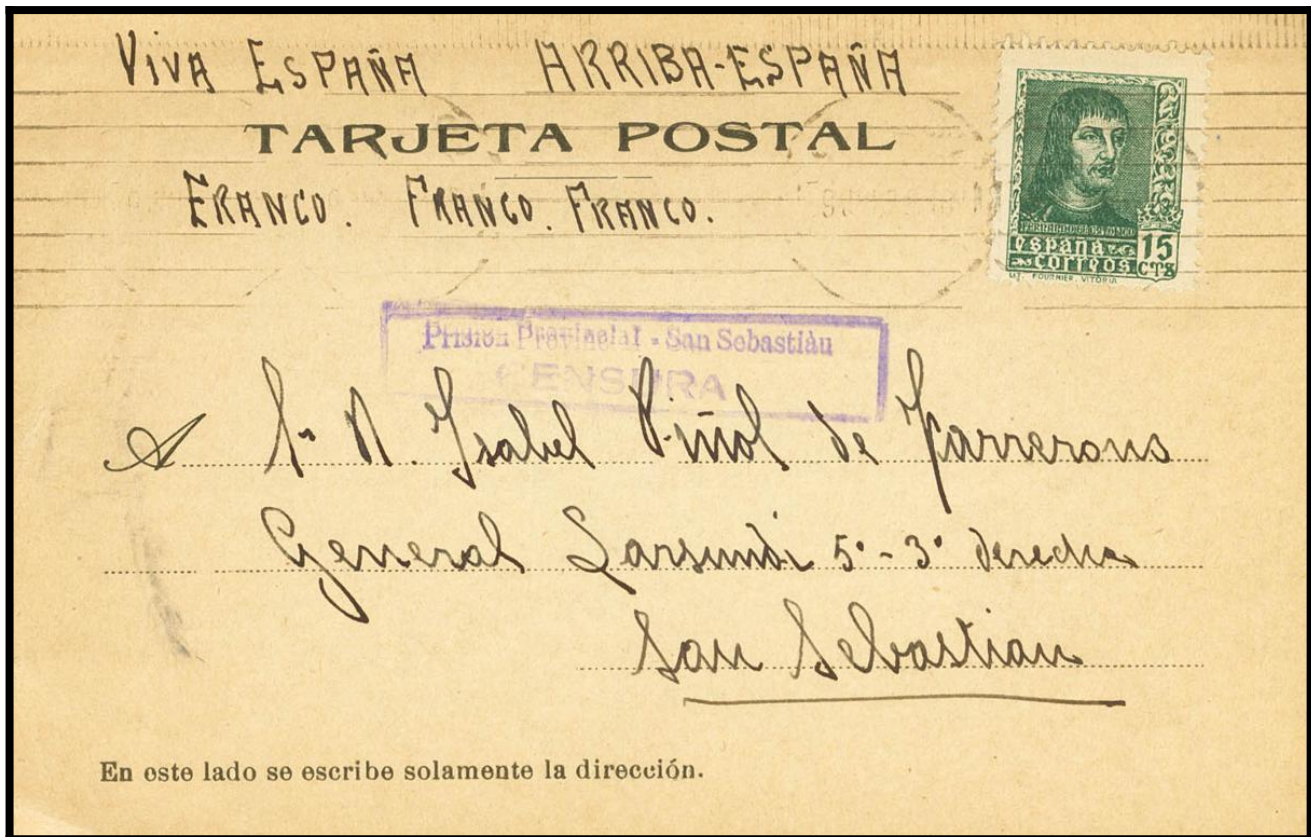 VIVA ESPAÑA ARRIBA-ESPAÑA
TARJETA POSTAL
FRANCO. FRANCO. FRANCO.
FERNANDO EL CATOLICO
españa
correos
15
CTS
FOURNIER. VITORIA
Prisión Provincial - San Sebastiàn
CENSURA
A Isabel Piñol de
General 5º - 3º derecha
San Sebastian
En este lado se escribe solamente la dirección.